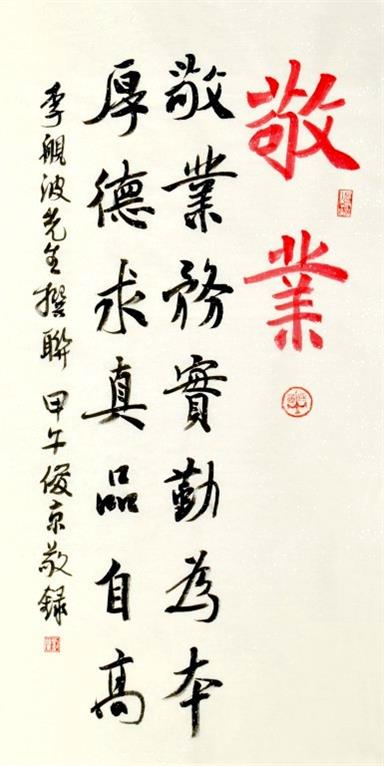 敬業
敬業務實勤為本
厚德求真品自高
李覌波先生撰聯 甲午俊京敬録